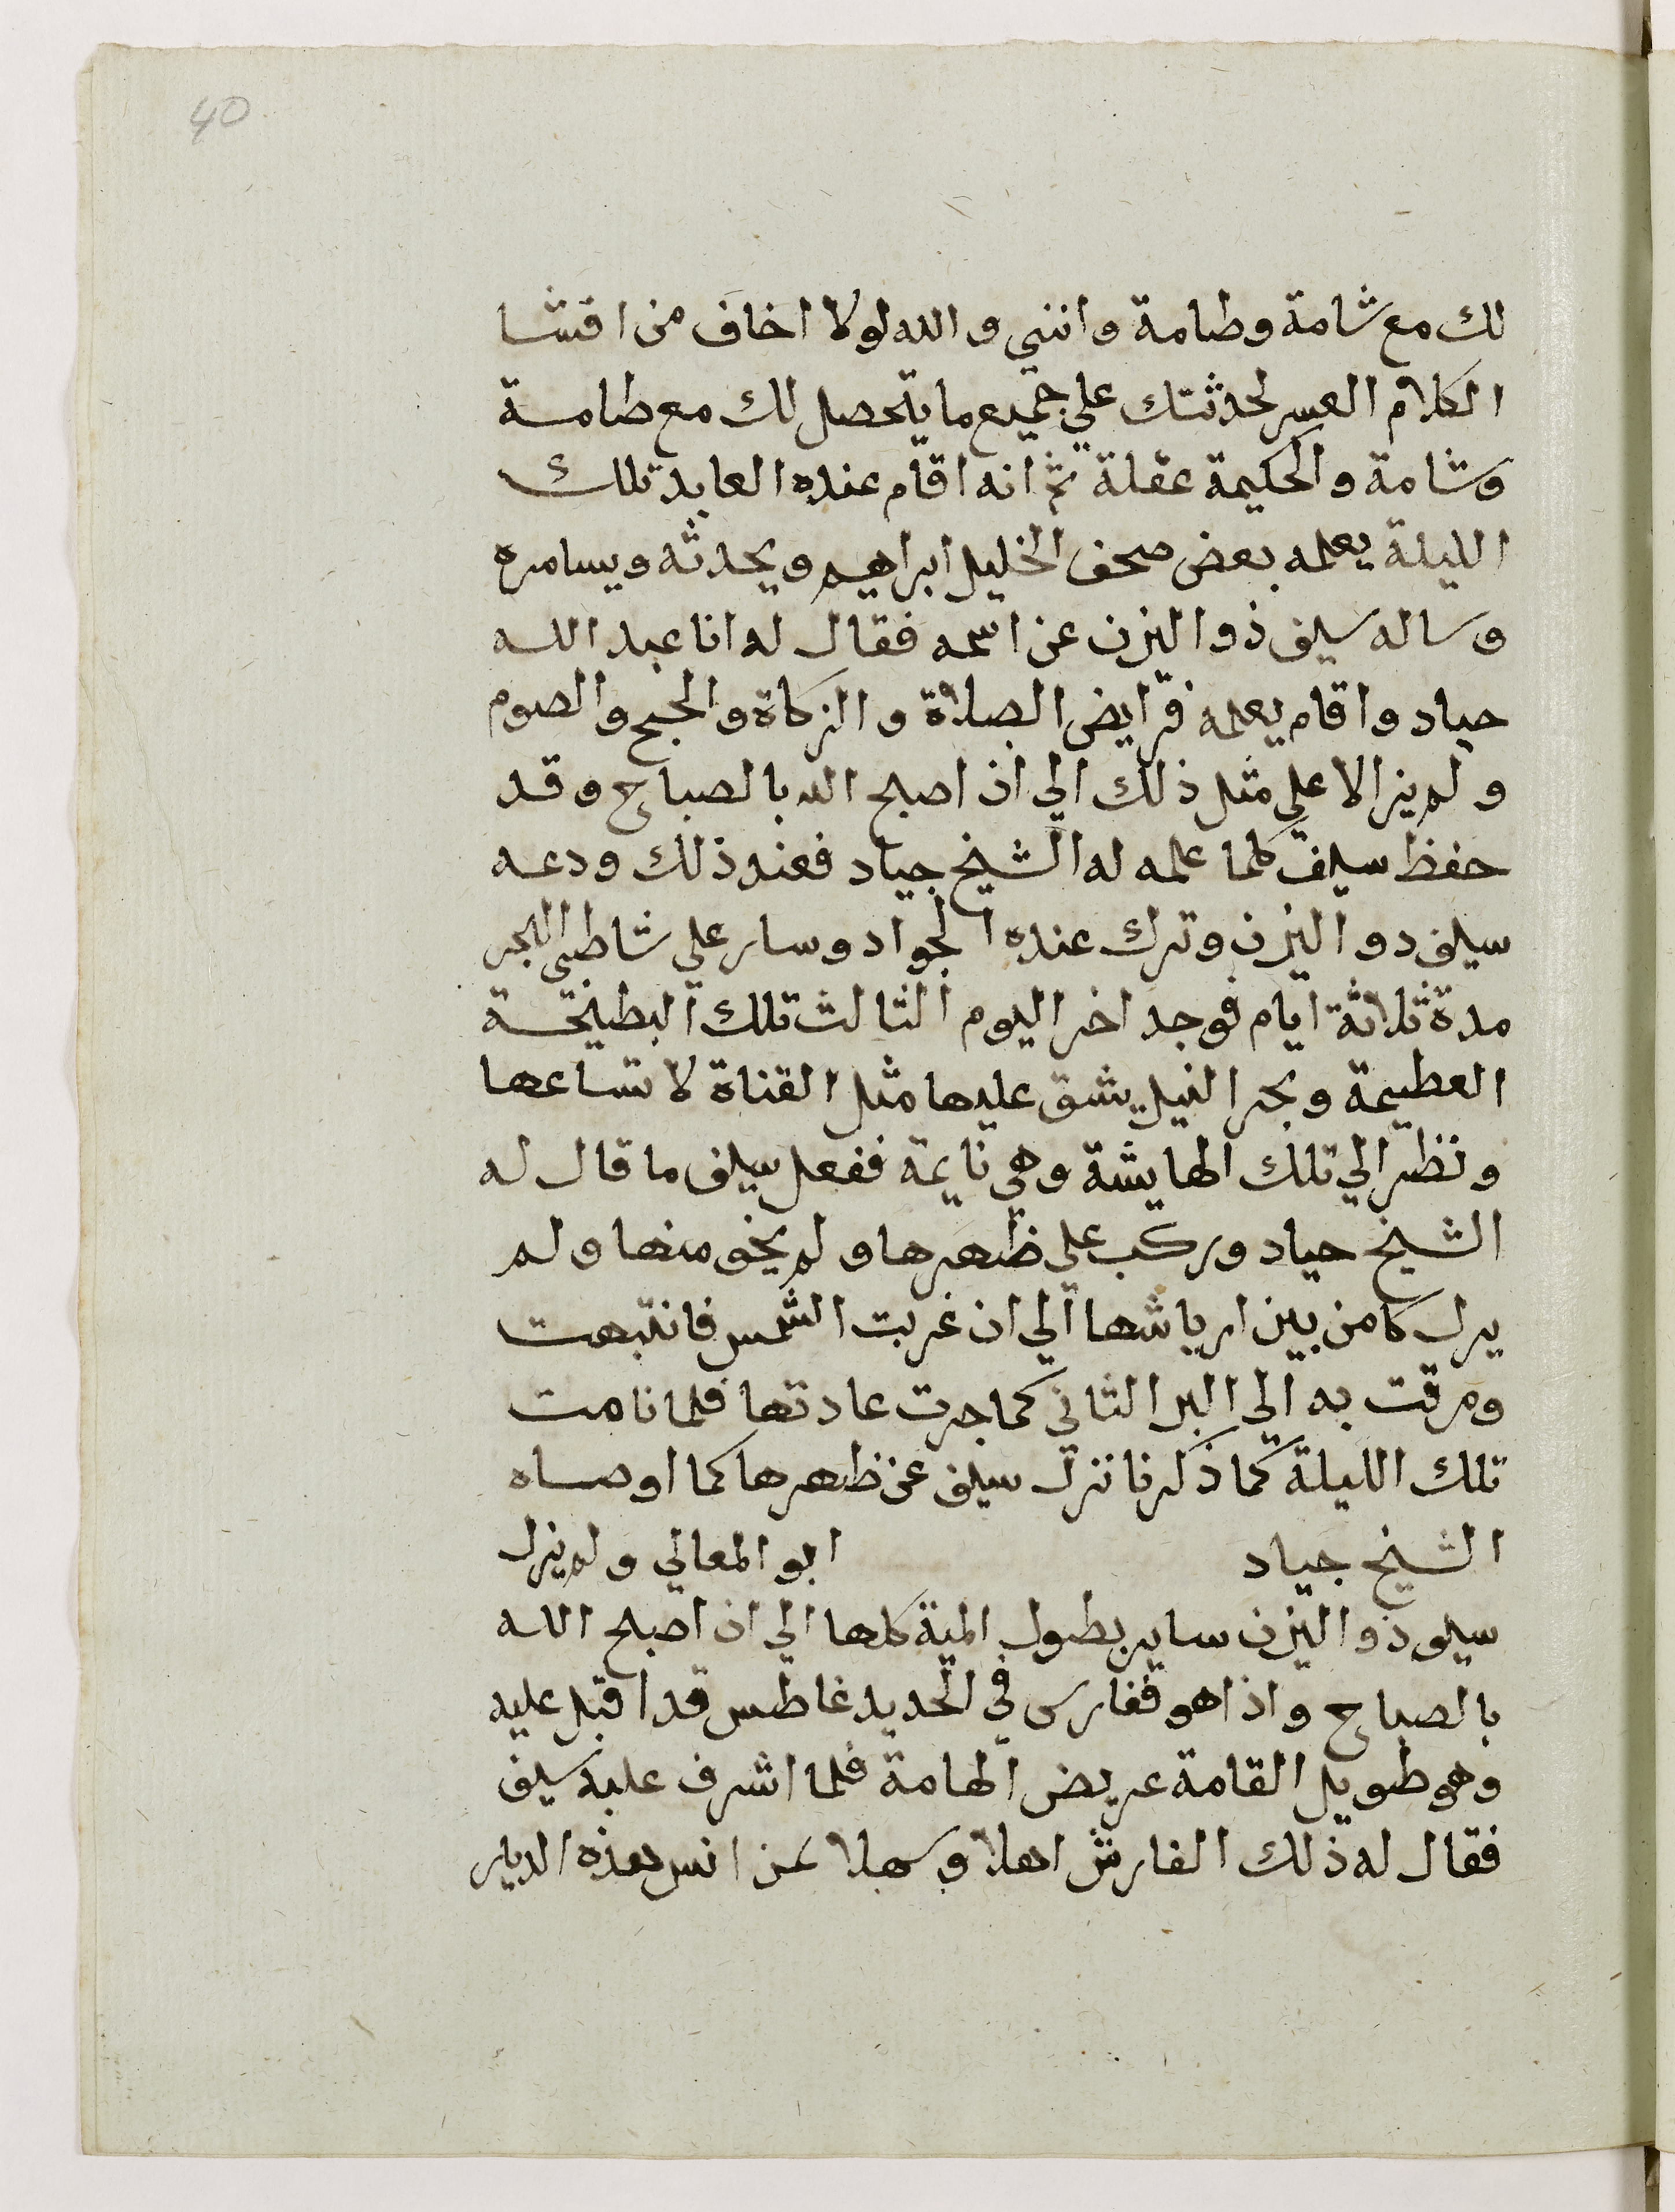 40
لك مع شامة وطامة وانني والله لولا اخاف من افشا
الكلام العسر لحدثتك علي جميع ما يتحصل لك مع طامة
وشامة والحكيمة عقلة ثم انه اقام عنده العابد تلك
الليلة يعلمه بعض صحف الخليل ابراهيم ويحدثه ويسامره
وساله سيف ذو اليزن عن اسمه فقال له انا عبد الله
جياد واقام يعلمه فرايض الصلاة والزكاة والحج والصوم
ولم يزالا علي مثل ذلك الي ان اصبح الله بالصباح وقد
حفظ سيف كلما علمه له الشيخ جياد فعند ذلك ودعه
سيف دو اليزن وترك عنده الجواد وسار علي شاطي البحر
مدة ثلاثة ايام فوجد اخر اليوم الثالث تلك البطيخة
العظيمة وبحر النيل يشق عليها مثل القناة لاتساعها
ونظر الي تلك الهايشة وهي نايمة ففعل سيف ما قال له
الشيخ جياد وركب علي ظهرها ولم يخف منها ولم
يزل كامن بين ارياشها الي ان غربت الشمس فانتبهت
ومرقت به الي البر الثاني كما جرت عادتها فلما نامت
تلك الليلة كما ذكرنا نزل سيف عن ظهرها كما اوصاه
الشيخ جياد ابو المعالي ولم يزل
سيف ذو اليزن ساير بطول المية كلها الي ان اصبح الله
بالصباح واذا هو ففارس في الحديد غاطس قد اقبل عليه
وهو طويل القامة عريض الهامة فلما اشرف عليه سيف
فقال له ذلك الفارش اهلا وسهلا بمن انس هذه الديار